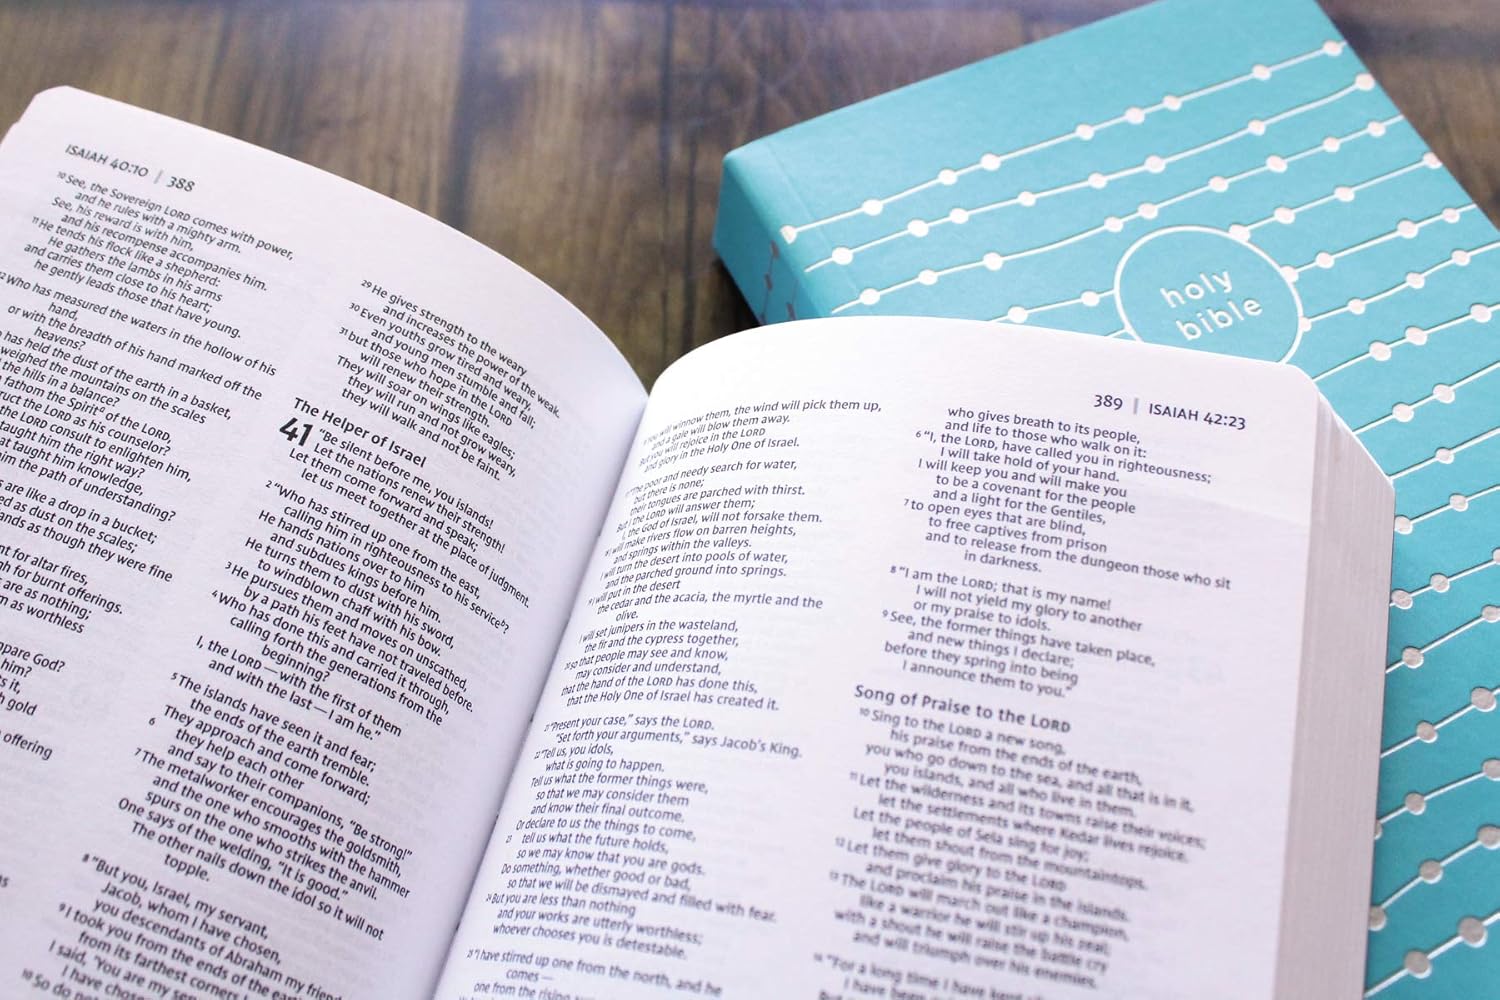 ISAIAH 40:10 | 388
10 See, the Sovereign LORD comes with power,
and he rules with a mighty arm.
See, his reward is with him,
and his recompense accompanies him.
11 He tends his flock like a shepherd:
He gathers the lambs in his arms
and carries them close to his heart;
he gently leads those that have young.
12 Who has measured the waters in the hollow of his
hand,
or with the breadth of his hand marked off the
heavens?
has held the dust of the earth in a basket,
weighed the mountains on the scales
the hills in a balance?
fathom the Spirit of the LORD,
the LORD as his counselor?
the LORD consult to enlighten him,
taught him the right way?
taught him knowledge,
him the path of understanding?
are like a drop in a bucket;
as dust on the scales;
as though they were fine
for altar fires,
for burnt offerings.
are as nothing;
as worthless
God?
him?
it,
gold
offering
29 He gives strength to the weary
and increases the power of the weak.
30 Even youths grow tired and weary,
and young men stumble and fall;
31 but those who hope in the LORD
will renew their strength.
They will soar on wings like eagles;
they will run and not grow weary,
they will walk and not be faint.
The Helper of Israel
41 "Be silent before me, you islands!
Let the nations renew their strength!
Let them come forward and speak;
let us meet together at the place of judgment.
2 "Who has stirred up one from the east,
calling him in righteousness to his service?
He hands nations over to him
and subdues kings before him.
He turns them to dust with his sword,
to windblown chaff with his bow.
3 He pursues them and moves on unscathed,
by a path his feet have not traveled before.
4 Who has done this and carried it through,
calling forth the generations from the
beginning?
I, the LORD—with the first of them
and with the last—I am he."
5 The islands have seen it and fear;
the ends of the earth tremble.
They approach and come forward;
6 they help each other
and say to their companions, "Be strong!"
7 The metalworker encourages the goldsmith,
and the one who smooths with the hammer
spurs on the one who strikes the anvil.
One says of the welding, "It is good."
The other nails down the idol so it will not
topple.
8 "But you, Israel, my servant,
Jacob, whom I have chosen,
you descendants of Abraham my friend,
9 I took you from the ends of the earth,
from its farthest corners I
I said, 'You are my
I have chosen
10 So do not
389 | ISAIAH 42:23
You will winnow them, the wind will pick them up,
and a gale will blow them away.
But you will rejoice in the LORD
and glory in the Holy One of Israel.
"The poor and needy search for water,
but there is none;
their tongues are parched with thirst.
But I the LORD will answer them;
I, the God of Israel, will not forsake them.
I will make rivers flow on barren heights,
and springs within the valleys.
I will turn the desert into pools of water,
and the parched ground into springs.
I will put in the desert
the cedar and the acacia, the myrtle and the
olive.
I will set junipers in the wasteland,
the fir and the cypress together,
20 so that people may see and know,
may consider and understand,
that the hand of the LORD has done this,
that the Holy One of Israel has created it.
21 "Present your case," says the LORD.
"Set forth your arguments," says Jacob's King.
22 "Tell us, you idols,
what is going to happen.
Tell us what the former things were,
so that we may consider them
and know their final outcome.
Or declare to us the things to come,
23 tell us what the future holds,
so we may know that you are gods.
Do something, whether good or bad,
so that we will be dismayed and filled with fear.
24 But you are less than nothing
and your works are utterly worthless;
whoever chooses you is detestable.
25 "I have stirred up one from the north, and he
comes—
one from the rising
who gives breath to its people,
and life to those who walk on it:
6 "I, the LORD, have called you in righteousness;
I will take hold of your hand.
I will keep you and will make you
to be a covenant for the people
and a light for the Gentiles,
7 to open eyes that are blind,
to free captives from prison
and to release from the dungeon those who sit
in darkness.
8 "I am the LORD; that is my name!
I will not yield my glory to another
or my praise to idols.
9 See, the former things have taken place,
and new things I declare;
before they spring into being
I announce them to you."
Song of Praise to the LORD
10 Sing to the LORD a new song,
his praise from the ends of the earth,
you who go down to the sea, and all that is in it,
you islands, and all who live in them.
11 Let the wilderness and its towns raise their voices;
let the settlements where Kedar lives rejoice.
Let the people of Sela sing for joy;
let them shout from the mountaintops.
12 Let them give glory to the LORD
and proclaim his praise in the islands.
13 The LORD will march out like a champion,
like a warrior he will stir up his zeal;
with a shout he will raise the battle cry
and will triumph over his enemies.
14 "For a long time I have kept
I have been
holy
bible